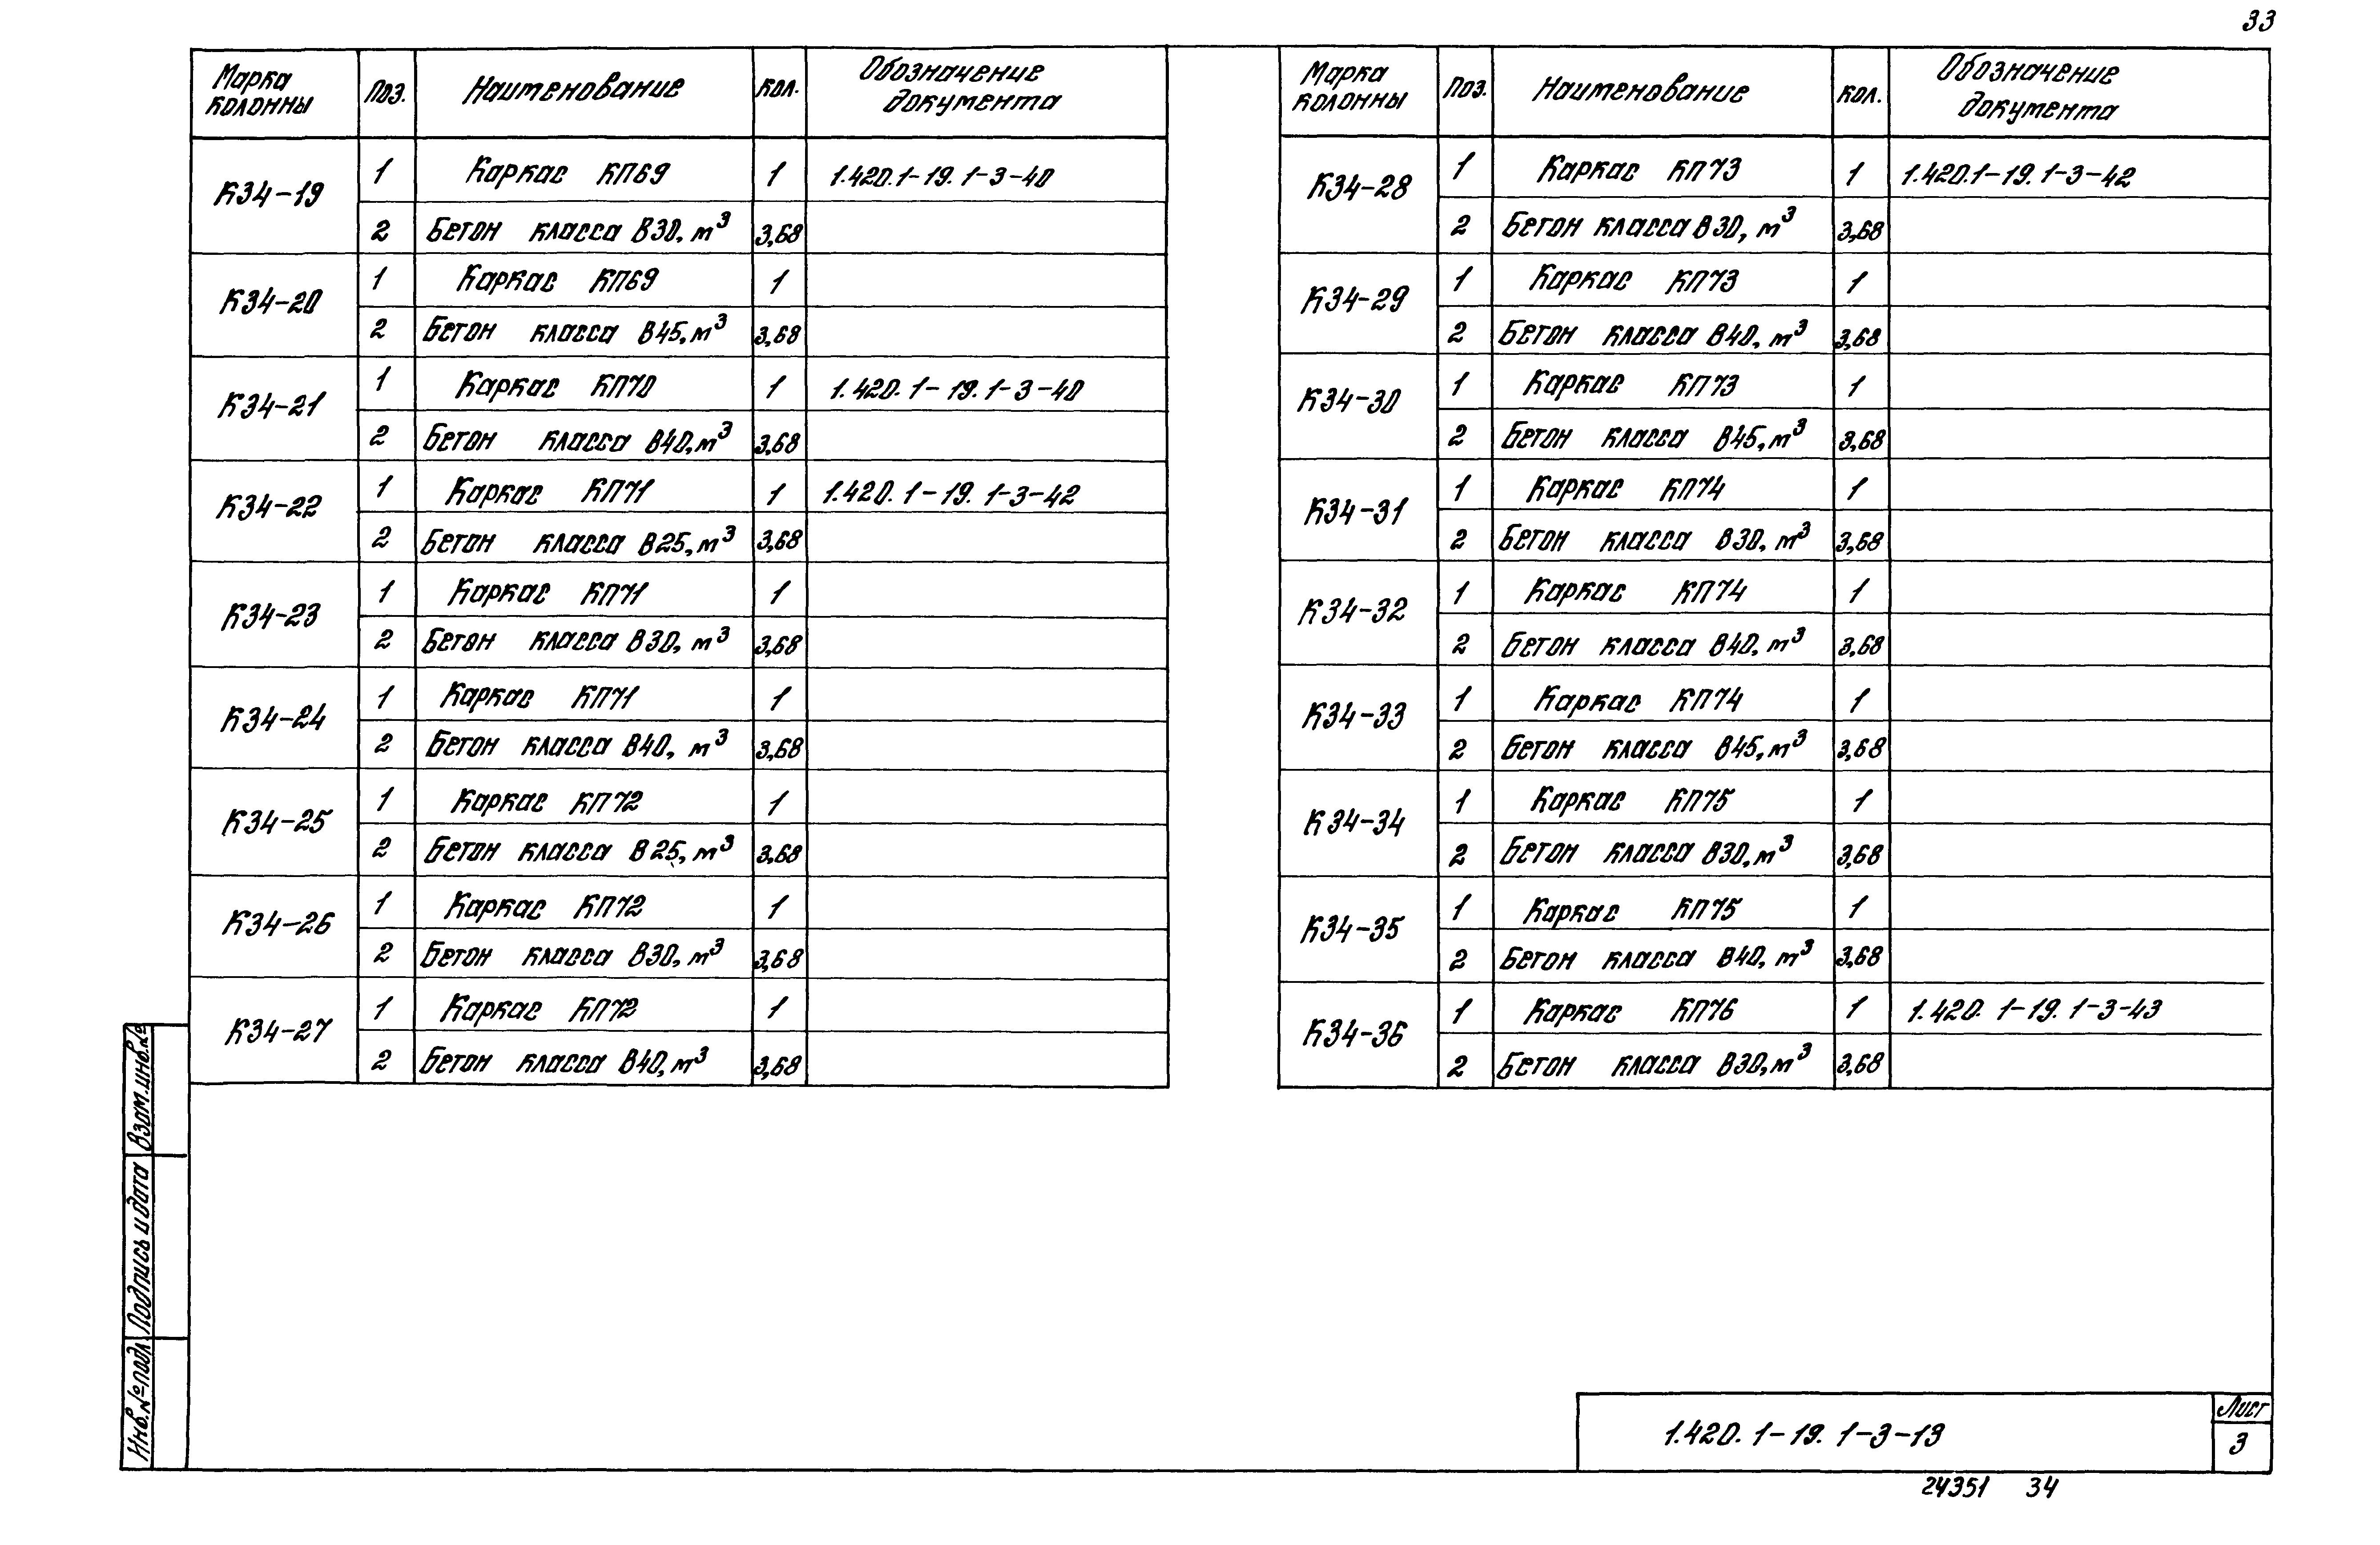 33
Марка колонны Поз. Наименование Кол. Обозначение документа
К34-19 1 Каркас КП69 1 1.420.1-19.1-3-40
2 Бетон класса В30, м³ 3,68
К34-20 1 Каркас КП69 1
2 Бетон класса В45, м³ 3,68
К34-21 1 Каркас КП70 1 1.420.1-19.1-3-40
2 Бетон класса В40, м³ 3,68
К34-22 1 Каркас КП71 1 1.420.1-19.1-3-42
2 Бетон класса В25, м³ 3,68
К34-23 1 Каркас КП71 1
2 Бетон класса В30, м³ 3,68
К34-24 1 Каркас КП71 1
2 Бетон класса В40, м³ 3,68
К34-25 1 Каркас КП72 1
2 Бетон класса В25, м³ 3,68
К34-26 1 Каркас КП72 1
2 Бетон класса В30, м³ 3,68
К34-27 1 Каркас КП72 1
2 Бетон класса В40, м³ 3,68
Марка колонны Поз. Наименование Кол. Обозначение документа
К34-28 1 Каркас КП73 1 1.420.1-19.1-3-42
2 Бетон класса В30, м³ 3,68
К34-29 1 Каркас КП73 1
2 Бетон класса В40, м³ 3,68
К34-30 1 Каркас КП73 1
2 Бетон класса В45, м³ 3,68
К34-31 1 Каркас КП74 1
2 Бетон класса В30, м³ 3,68
К34-32 1 Каркас КП74 1
2 Бетон класса В40, м³ 3,68
К34-33 1 Каркас КП74 1
2 Бетон класса В45, м³ 3,68
К34-34 1 Каркас КП75 1
2 Бетон класса В30, м³ 3,68
К34-35 1 Каркас КП75 1
2 Бетон класса В40, м³ 3,68
К34-36 1 Каркас КП76 1 1.420.1-19.1-3-43
2 Бетон класса В30, м³ 3,68
Взам. инв. №
Подпись и дата
Инв. № подл.
1.420.1-19.1-3-13
Лист
3
24351 34